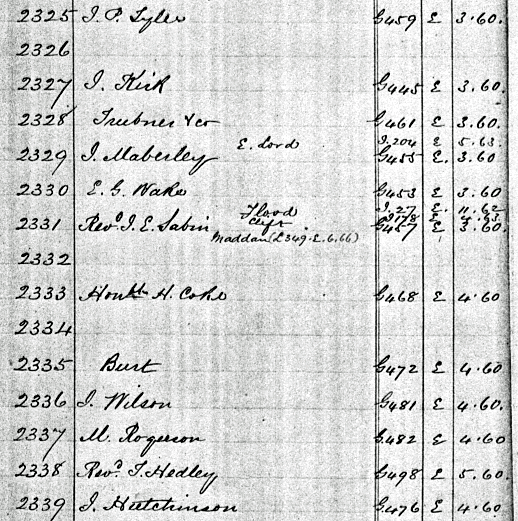 2325 J. P. Tyler G459 E 3.60.
2326
2327 J. Kirk G445 E 3.60.
2328 Trubner & co G461 E 3.60.
E. Lord J.204 E 5.63.
2329 J. Maberley G455 E. 3.60
2330 E. G. Wake G453 E 3.60
Flood J.27 E 11.62
Clift E
2331 Revd. J. E. Sabin G457 E 3.60.
Maddan (L349. E. 6.66)
2332
2333 Honble H. Coke G468 E 4.60
2334
2335 Burt G472 E 4.60
2336 J. Wilson G481 E 4.60.
2337 M. Rogerson G482 E 4.60
2338 Revd. T. Hedley G498 E 5.60.
2339 J. Hutchinson G476 E 4.60